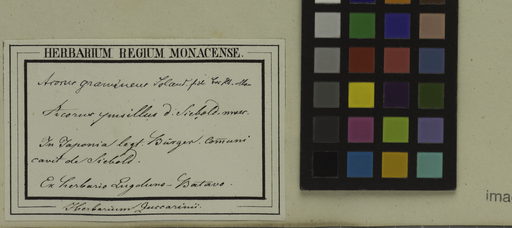 HERBARIUM REGIUM MONACENSE.
Acorus gramineus Soland
Acorus pusillus d. Siebold. mscr.
In Japonia legt. Bürger. comuni
cavit de Siebold.
Ex herbario Lugduno-Batavo.
Herbarium Zuccarinii.
ima